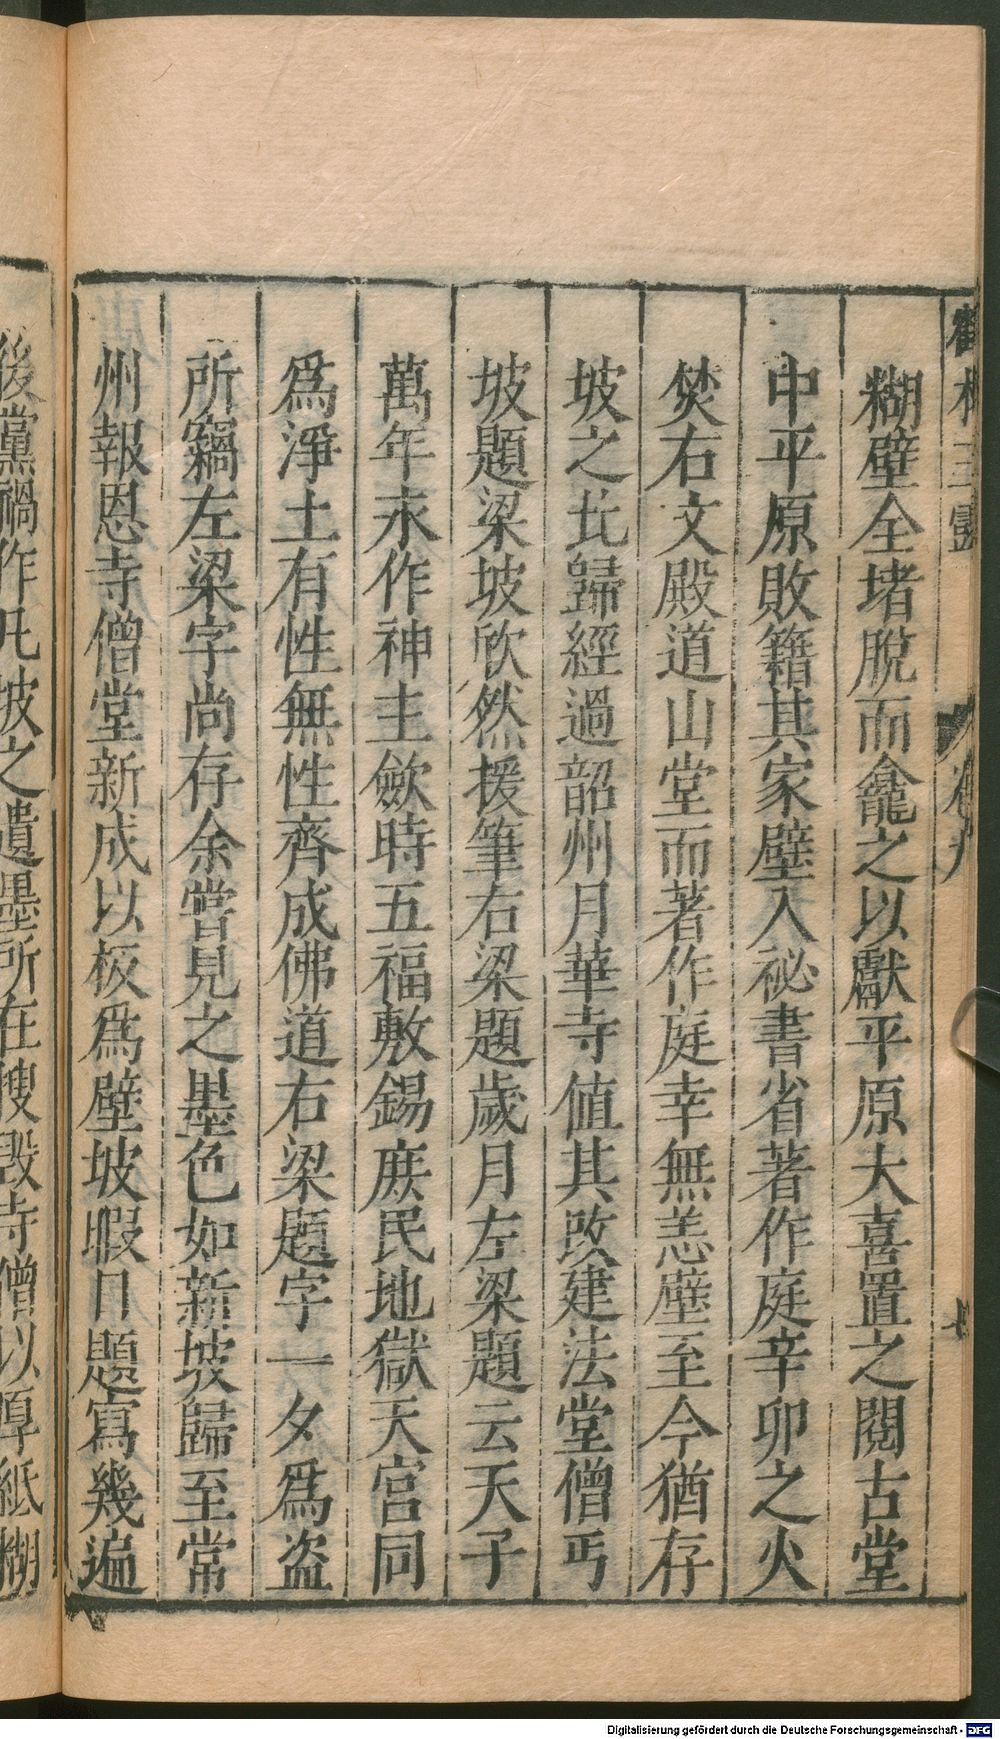 鶴林玉露 卷九 七
糊壁全堵脫而龕之以獻平原大喜置之閱古堂
中平原敗籍其家壁入祕書省著作庭辛卯之火
焚右文殿道山堂而著作庭幸無恙壁至今猶存
坡之北歸經過韶州月華寺值其改建法堂僧丐
坡題梁坡欣然援筆右梁題歲月左梁題云天子
萬年永作神主歛時五福敷錫庶民地獄天宮同
爲淨土有性無性齊成佛道右梁題字一夕爲盜
所竊左梁字尚存余嘗見之墨色如新坡歸至常
州報恩寺僧堂新成以板爲壁坡暇日題寫幾遍
後黨禍作凡坡之遺墨所在搜毀寺僧以厚紙糊
Digitalisierung gefördert durch die Deutsche Forschungsgemeinschaft - DFG